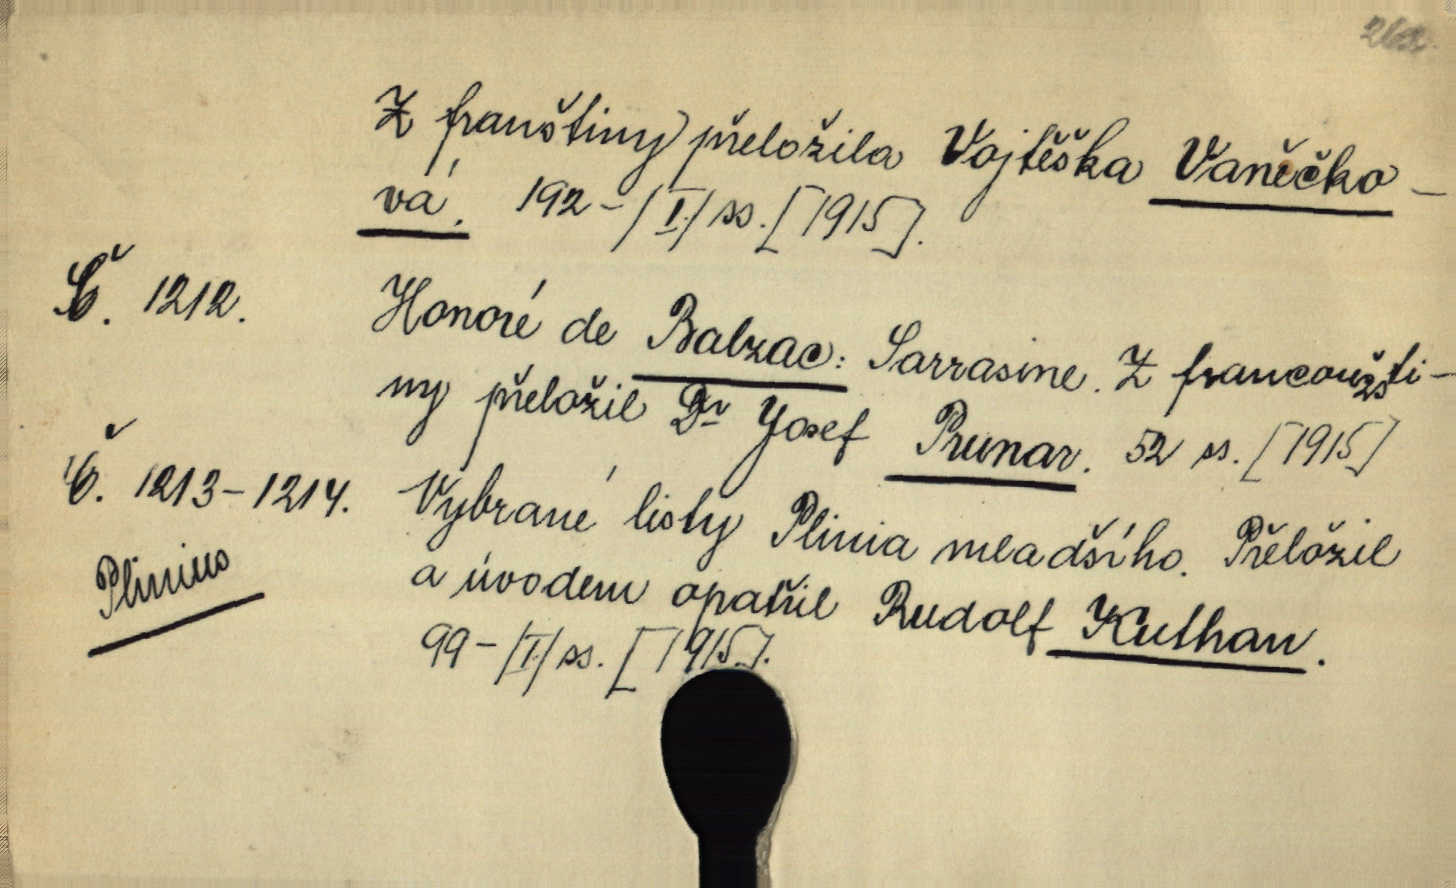 Z franštiny přeložila Vojtěška Vaněčko-
vá. 192-/I/ ss. [1915].
Č. 1212. Honoré de Balzac: Sarrasine. Z francouzšti-
ny přeložil Dr Josef Prunar. 52 ss. [1915]
Č. 1213-1214. Vybrané listy Plinia mladšího. Přeložil
Plinius a úvodem opatřil Rudolf Kuthan.
99-/I/ ss. [1915].